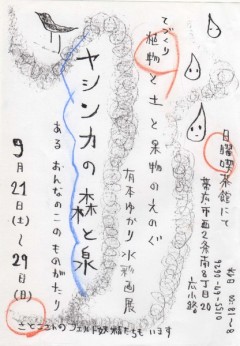 日曜喫茶館にて
帯広市西2条南8丁目20
広小路
てづくり
植物と土と果物のえのぐ
有本ゆかり水彩画展
ヤシンカの森と泉
あるおんなのこのものがたり
9月
21日(土)
〜
29日(日)
フェルト妖精たちもいます